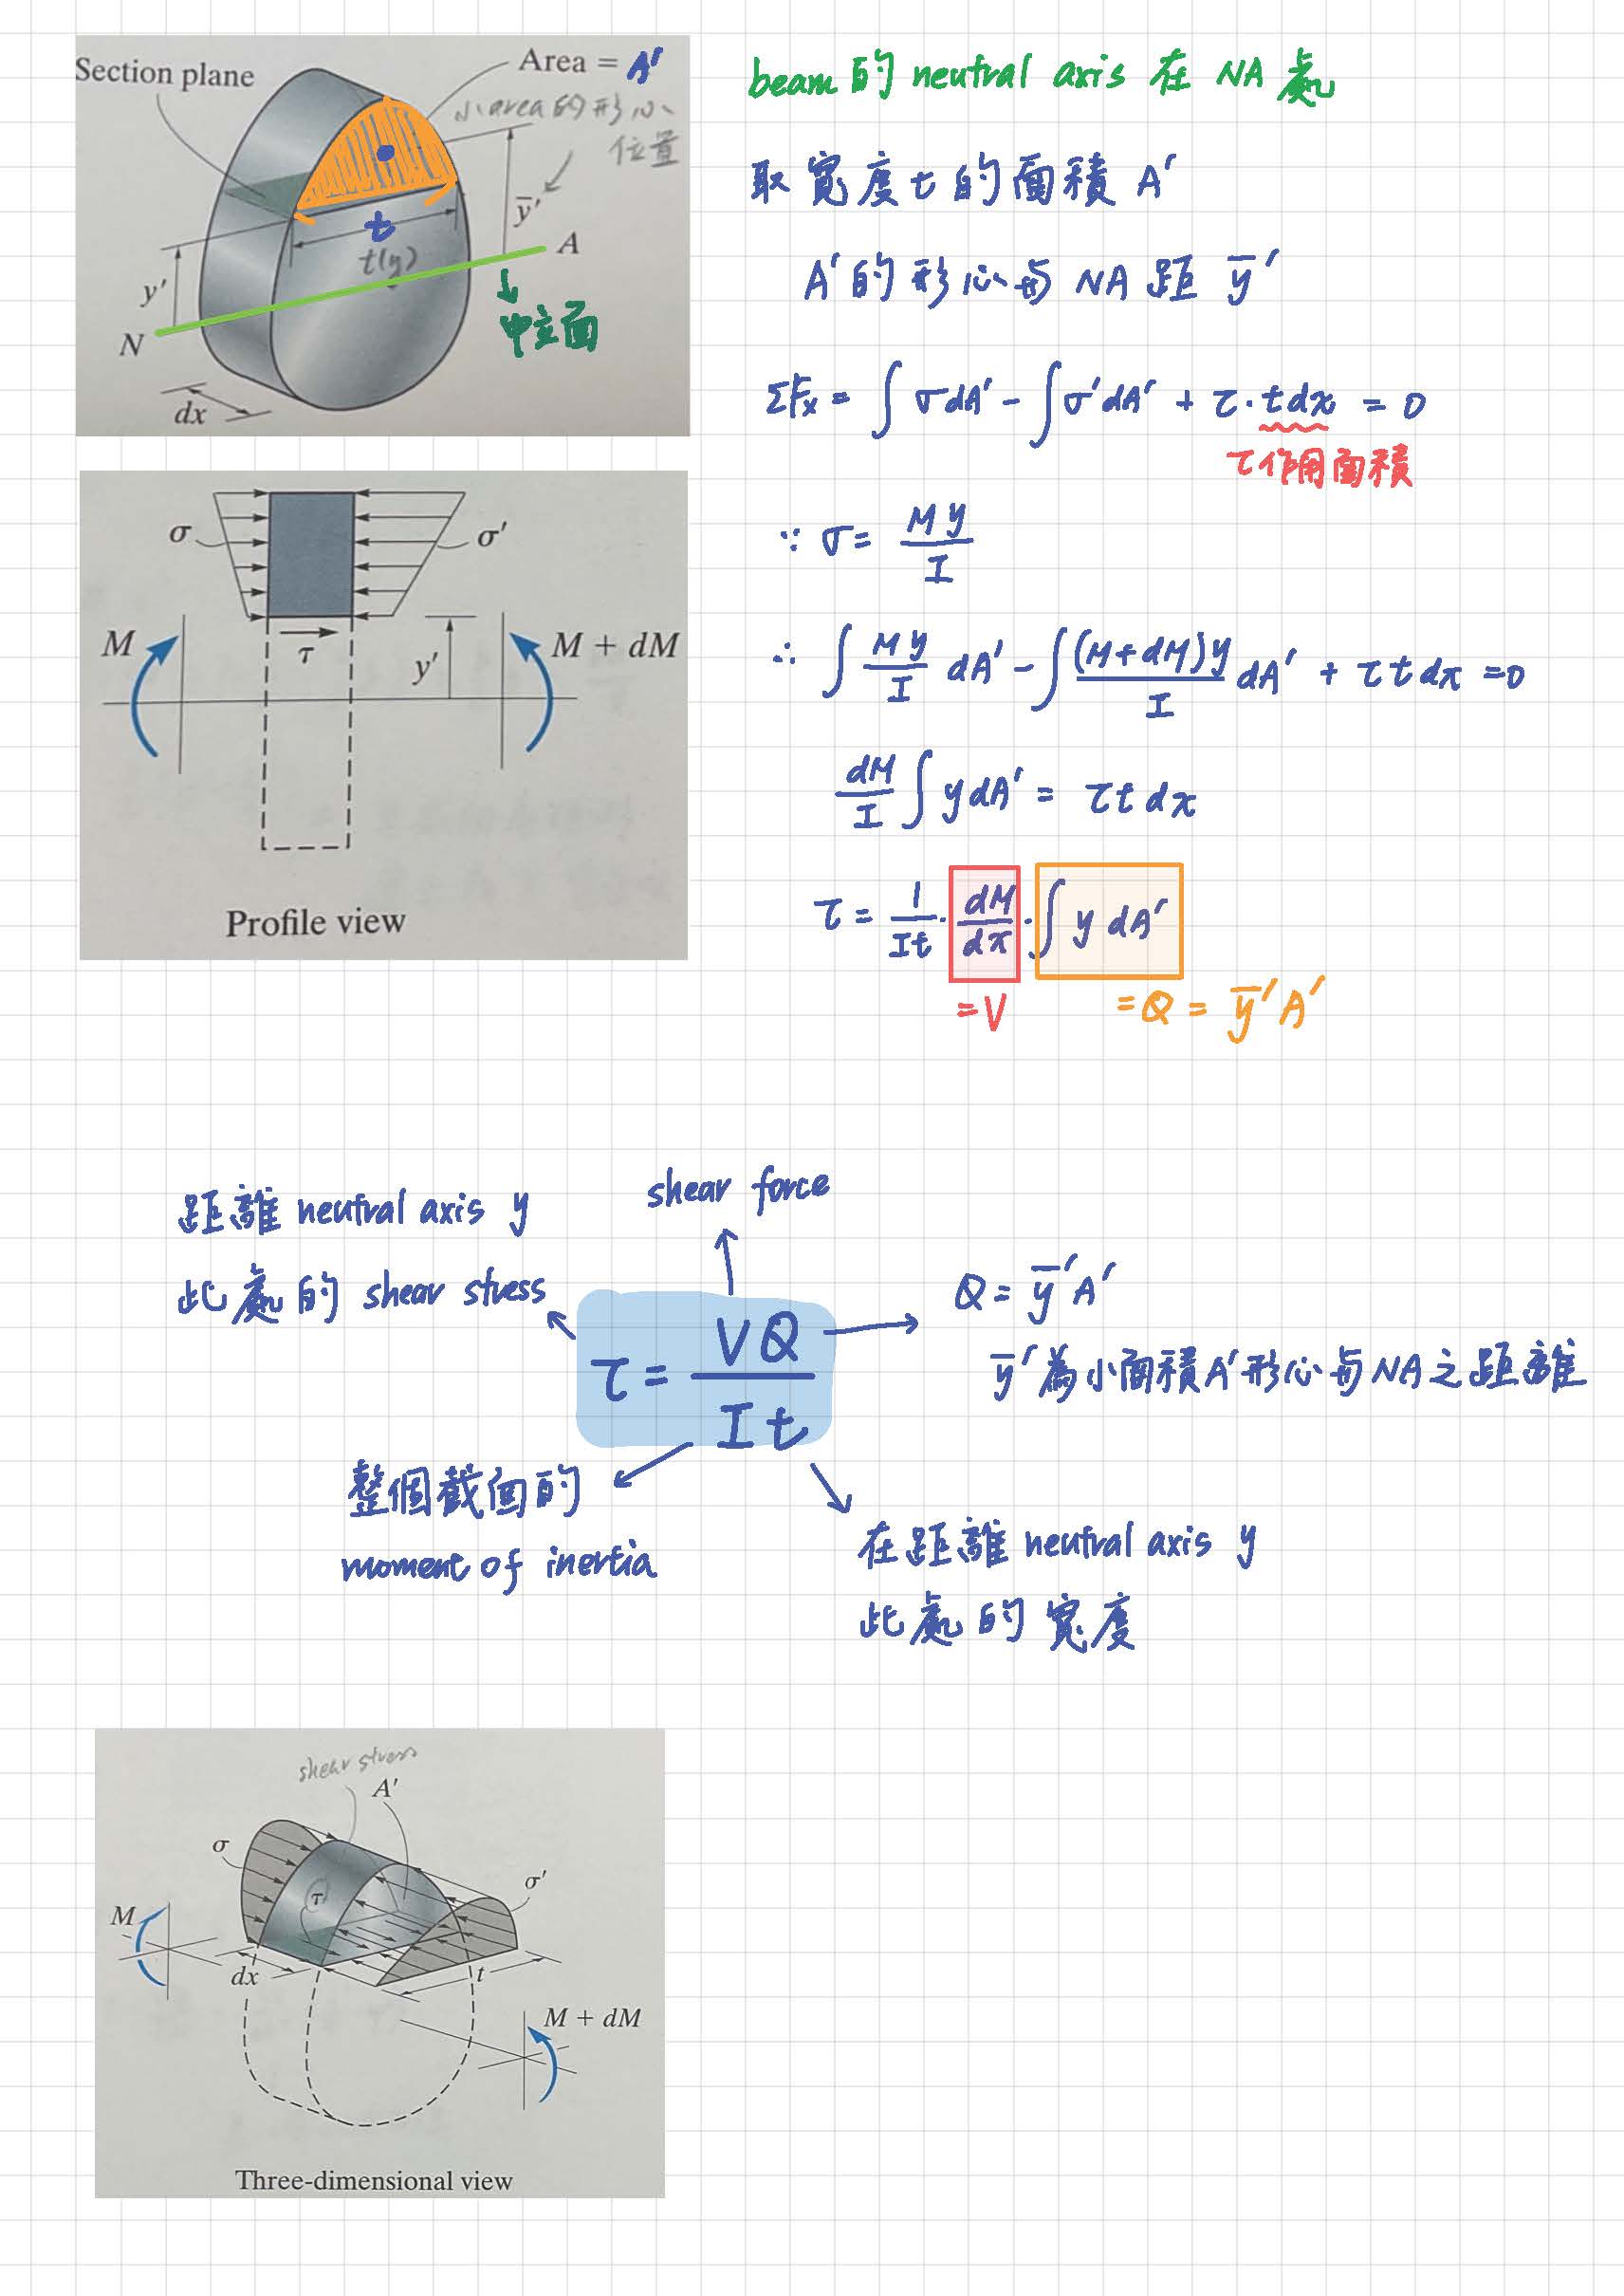 Section plane
Area = A'
小area的形心
位置
ȳ'
t
t(y)
A
y'
N
中立面
dx
beam的 neutral axis 在 NA 處
取寬度t的面積 A'
A'的形心与 NA 距 ȳ'
ΣFx = ∫ σdA' - ∫ σ'dA' + τ·tdx = 0
τ作用面積
∵ σ = My/I
∴ ∫ My/I dA' - ∫ (M+dM)y/I dA' + τtdx = 0
dM/I ∫ ydA' = τtdx
τ = 1/It · dM/dx · ∫ y dA'
= V
= Q = ȳ'A'
σ
σ'
M
τ
y'
M + dM
Profile view
距離 neutral axis y
此處的 shear stress
shear force
τ = VQ/It
Q = ȳ'A'
ȳ'為小面積A'形心与NA之距離
整個截面的
moment of inertia
在距離 neutral axis y
此處的寬度
shear stress
A'
σ
σ'
τ
M
dx
t
M + dM
Three-dimensional view